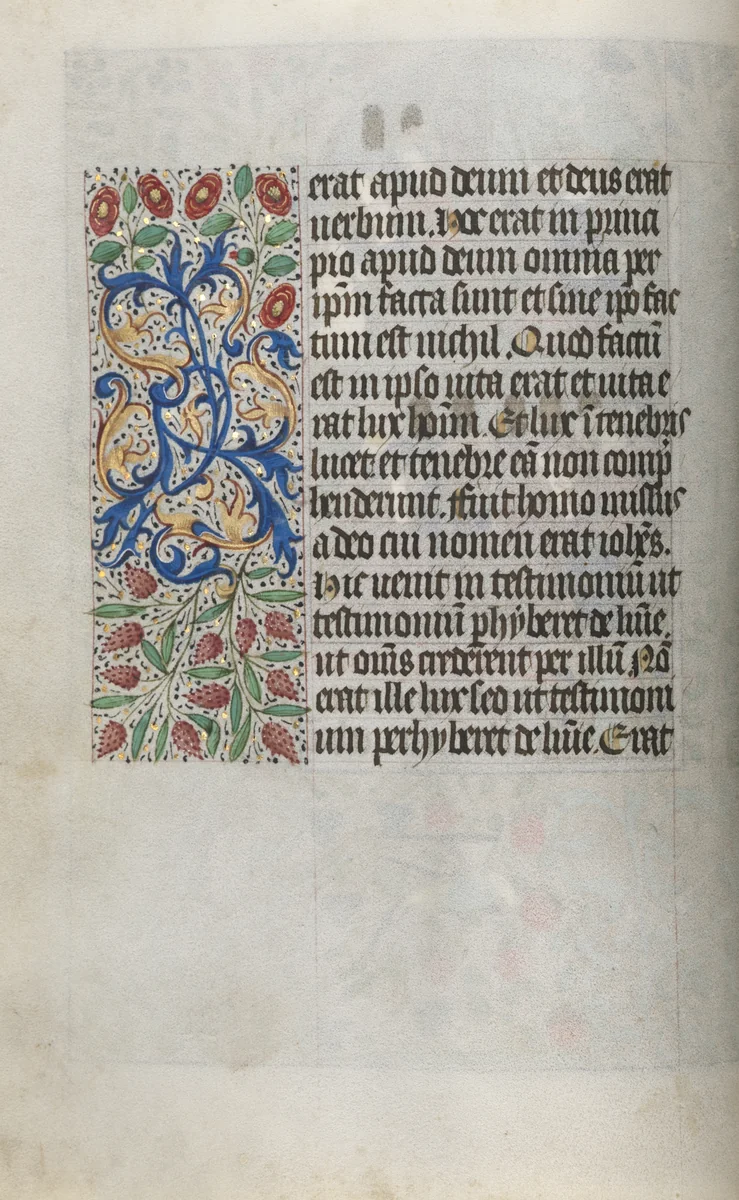 erat apud deum et deus erat
uerbum. Hoc erat in princi
pio apud deum omnia per
ip̄m facta sunt et sine ip̄o fac
tum est nichil. Quod factū
est in ipso uita erat et uita e
rat lux hom̄. Et lux ī tenebris
lucet et tenebre eā non comp̄
henderunt. Fuit homo missus
a deo cui nomen erat ioh̄es.
Hic uenit in testimoniū ut
testimoniū phyberet de lum̄e.
ut om̄s crederent per illū. Nō
erat ille lux sed ut testimoni
um perhyberet de lum̄e. Erat